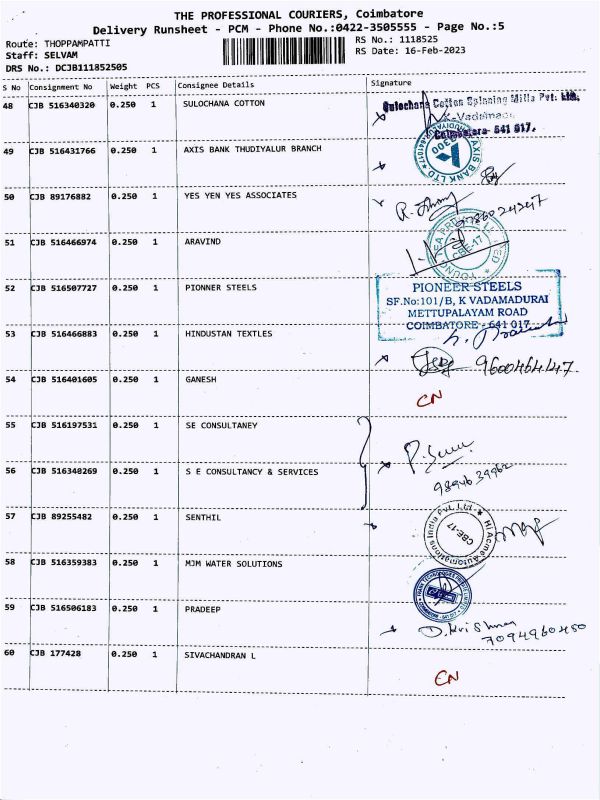 THE PROFESSIONAL COURIERS, Coimbatore
Delivery Runsheet - PCM - Phone No.:0422-3505555 - Page No.:5
Route: THOPPAMPATTI
RS No.: 1118525
Staff: SELVAM
RS Date: 16-Feb-2023
DRS No.: DCJB111852505
S No Consignment No Weight PCS Consignee Details Signature
48 CJB 516340320 0.250 1 SULOCHANA COTTON
Sulochana Cotton Spinning Mills Pvt. Ltd.
K-Vadamadurai
Coimbatore 641 017.
49 CJB 516431766 0.250 1 AXIS BANK THUDIYALUR BRANCH
AXIS BANK LTD
50 CJB 89176882 0.250 1 YES YEN YES ASSOCIATES
51 CJB 516466974 0.250 1 ARAVIND
CBE-17
52 CJB 516507727 0.250 1 PIONNER STEELS
PIONEER STEELS
SF.No:101/B, K VADAMADURAI
METTUPALAYAM ROAD
COIMBATORE - 641 017
53 CJB 516466883 0.250 1 HINDUSTAN TEXTLES
9600464447.
54 CJB 516401605 0.250 1 GANESH
CN
55 CJB 516197531 0.250 1 SE CONSULTANEY
56 CJB 516340269 0.250 1 S E CONSULTANCY & SERVICES
9894639962
57 CJB 89255482 0.250 1 SENTHIL
Hi Acme Automations India Pvt. Ltd.
CBE-17
58 CJB 516359383 0.250 1 MJM WATER SOLUTIONS
59 CJB 516506183 0.250 1 PRADEEP
D. Krishnan
7094960450
60 CJB 177428 0.250 1 SIVACHANDRAN L
CN